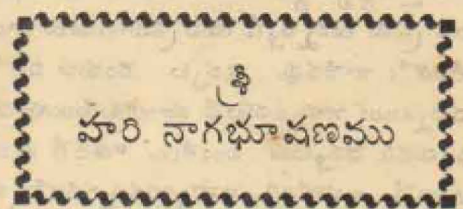 శ్రీ
హరి నాగభూషణము